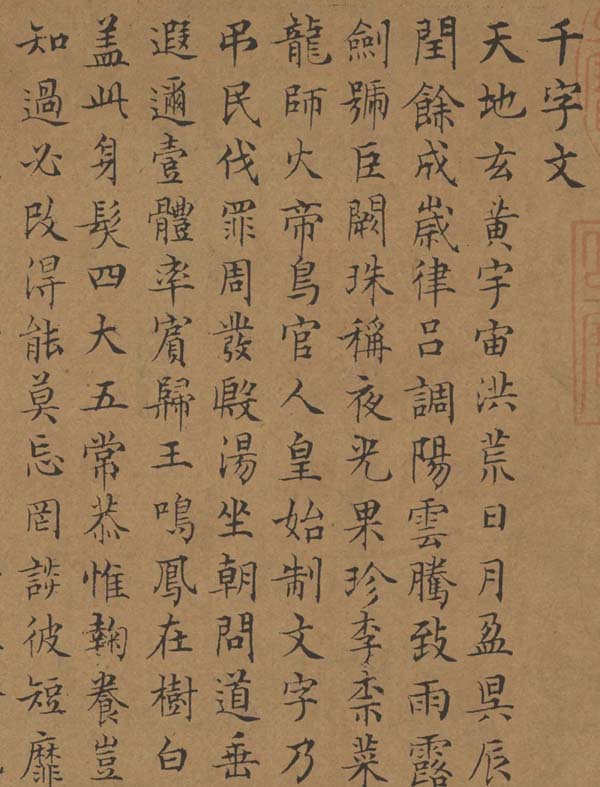 千字文
天地玄黃宇宙洪荒日月盈昃辰
閏餘成歲律呂調陽雲騰致雨露
劍號巨闕珠稱夜光果珍李柰菜
龍師火帝鳥官人皇始制文字乃
弔民伐罪周發殷湯坐朝問道垂
遐邇壹體率賓歸王鳴鳳在樹白
盖此身髮四大五常恭惟鞠養豈
知過必改得能莫忘罔談彼短靡